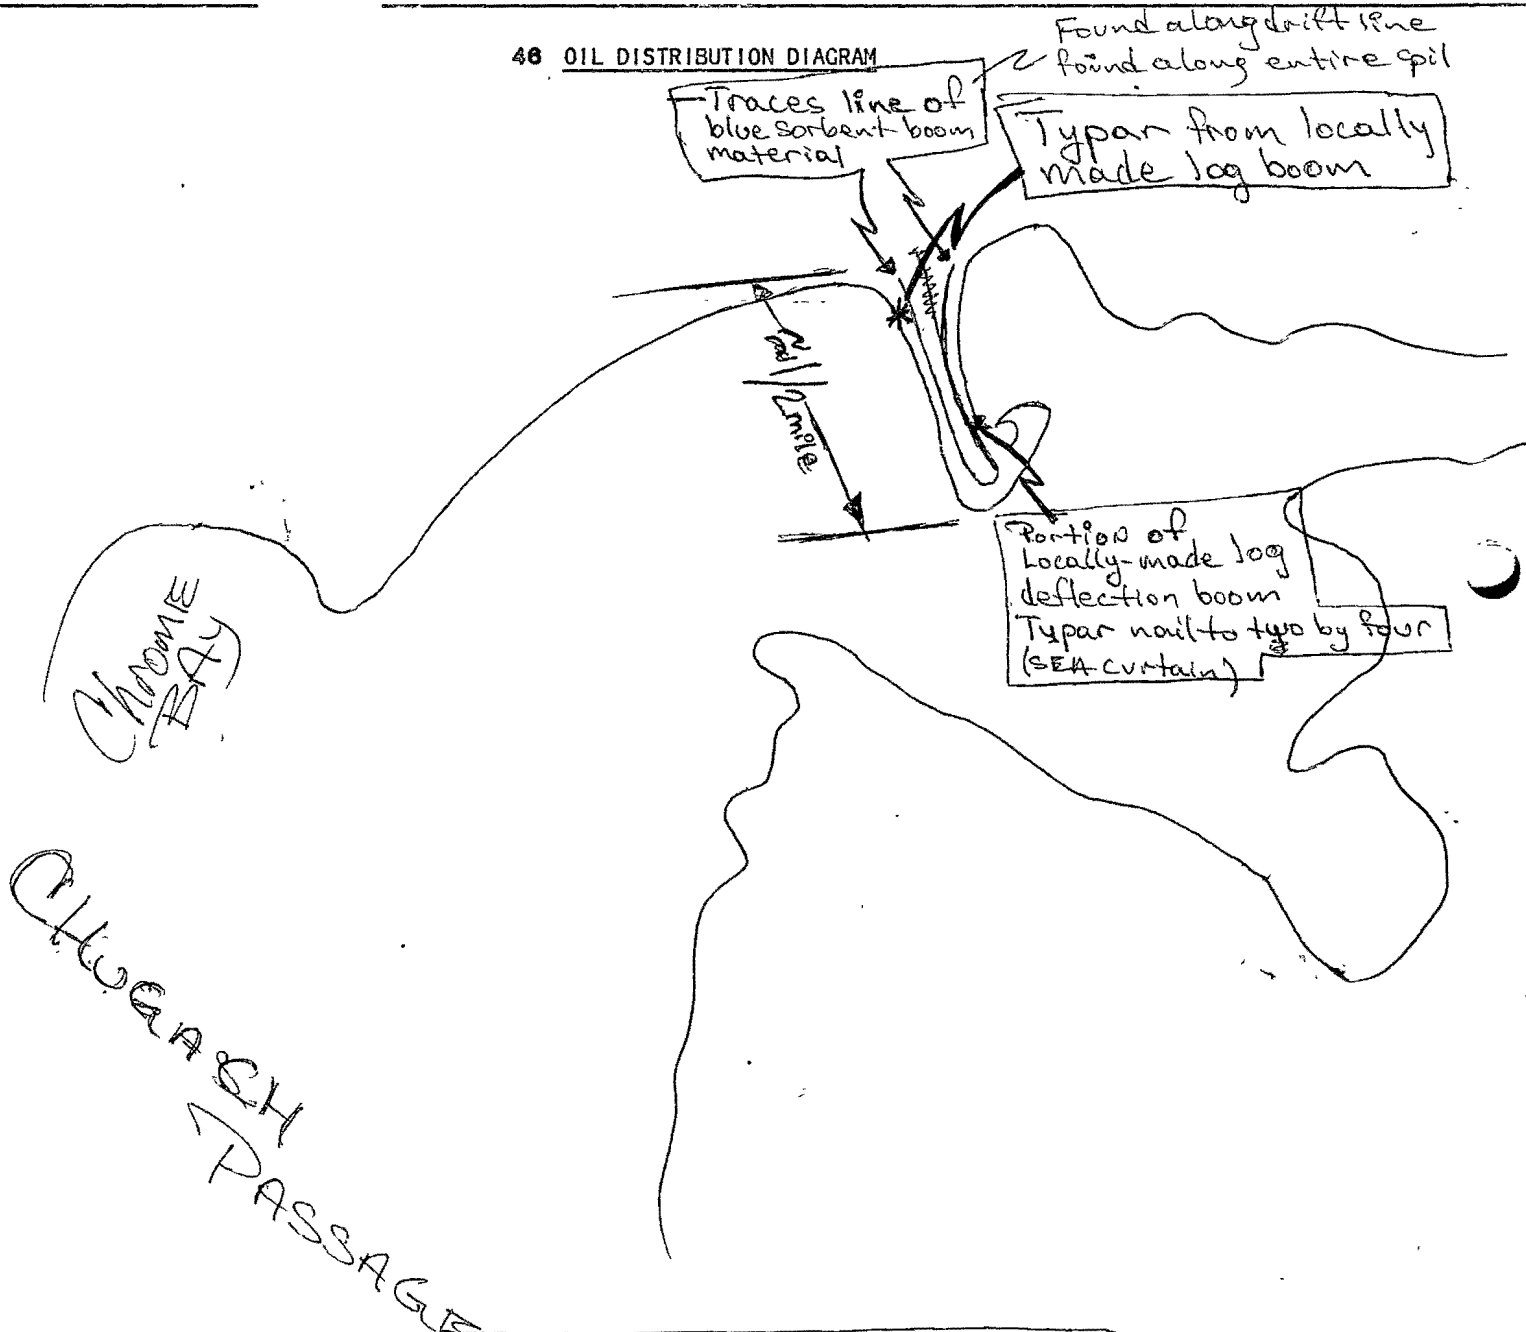 46 OIL DISTRIBUTION DIAGRAM
Found along drift line
found along entire spil
Traces line of
blue sorbent boom
material
Typar from locally
made log boom
1/2 mile
Portion of
Locally-made log
deflection boom
Typar nail to two by four
(SEA curtain)
Chrome
BAY
CHUGACH
PASSAGE